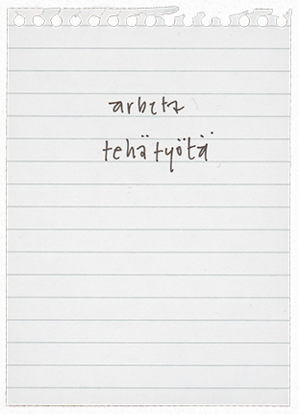 arbeta
tehätyötä